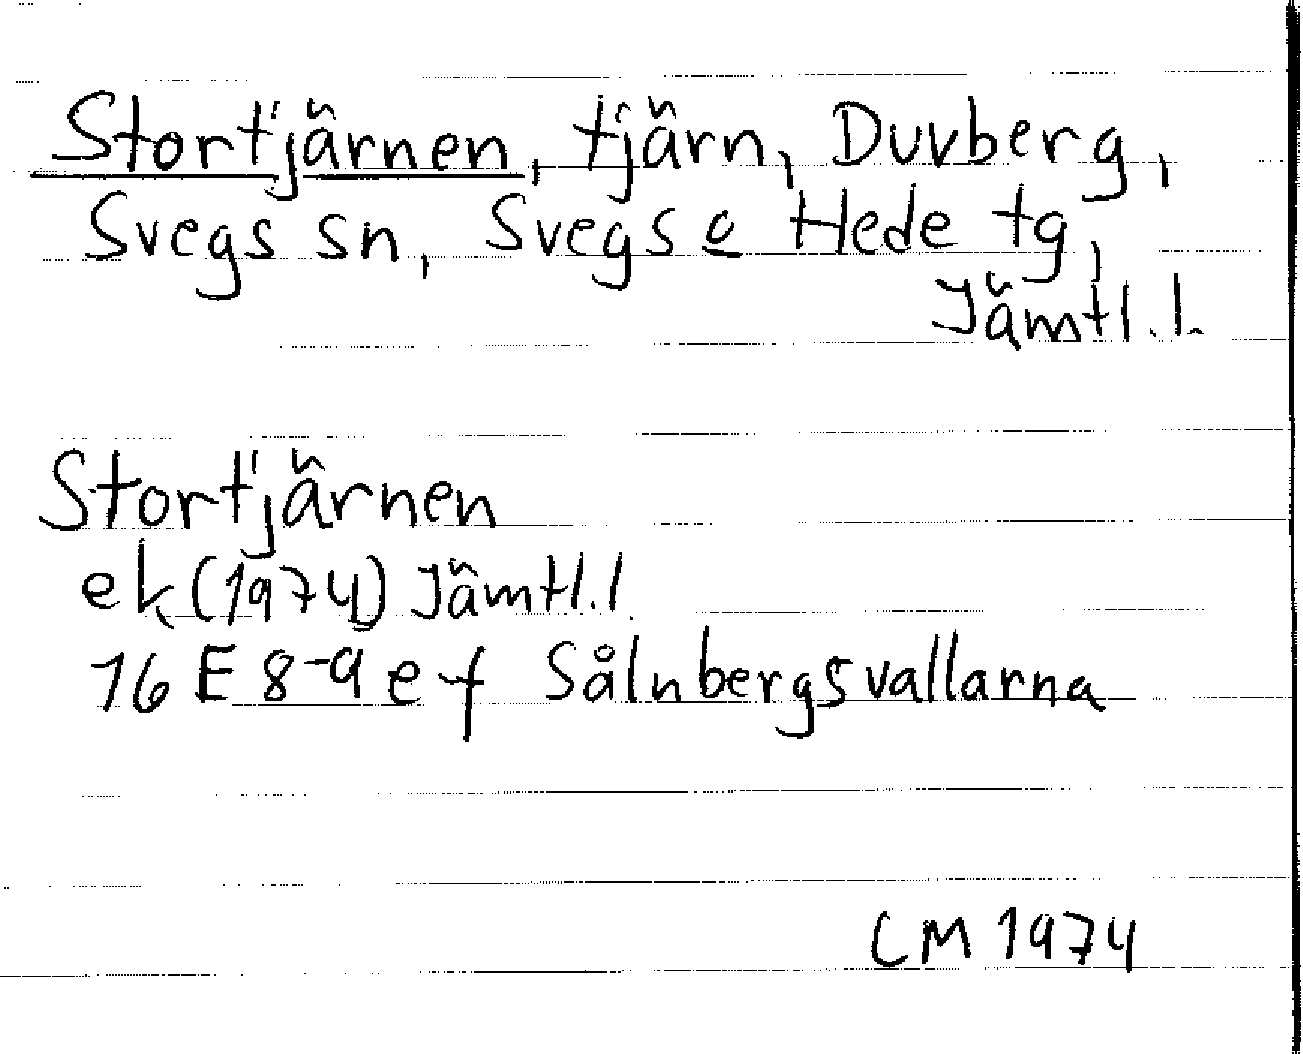 Stortjärnen, tjärn, Duvberg,
Svegs sn, Svegs o Hede tg,
Jämtl.l.
Stortjärnen
ek (1974) Jämtl.l.
16 E 8-9 e-f Sålnbergsvallarna
CM 1974